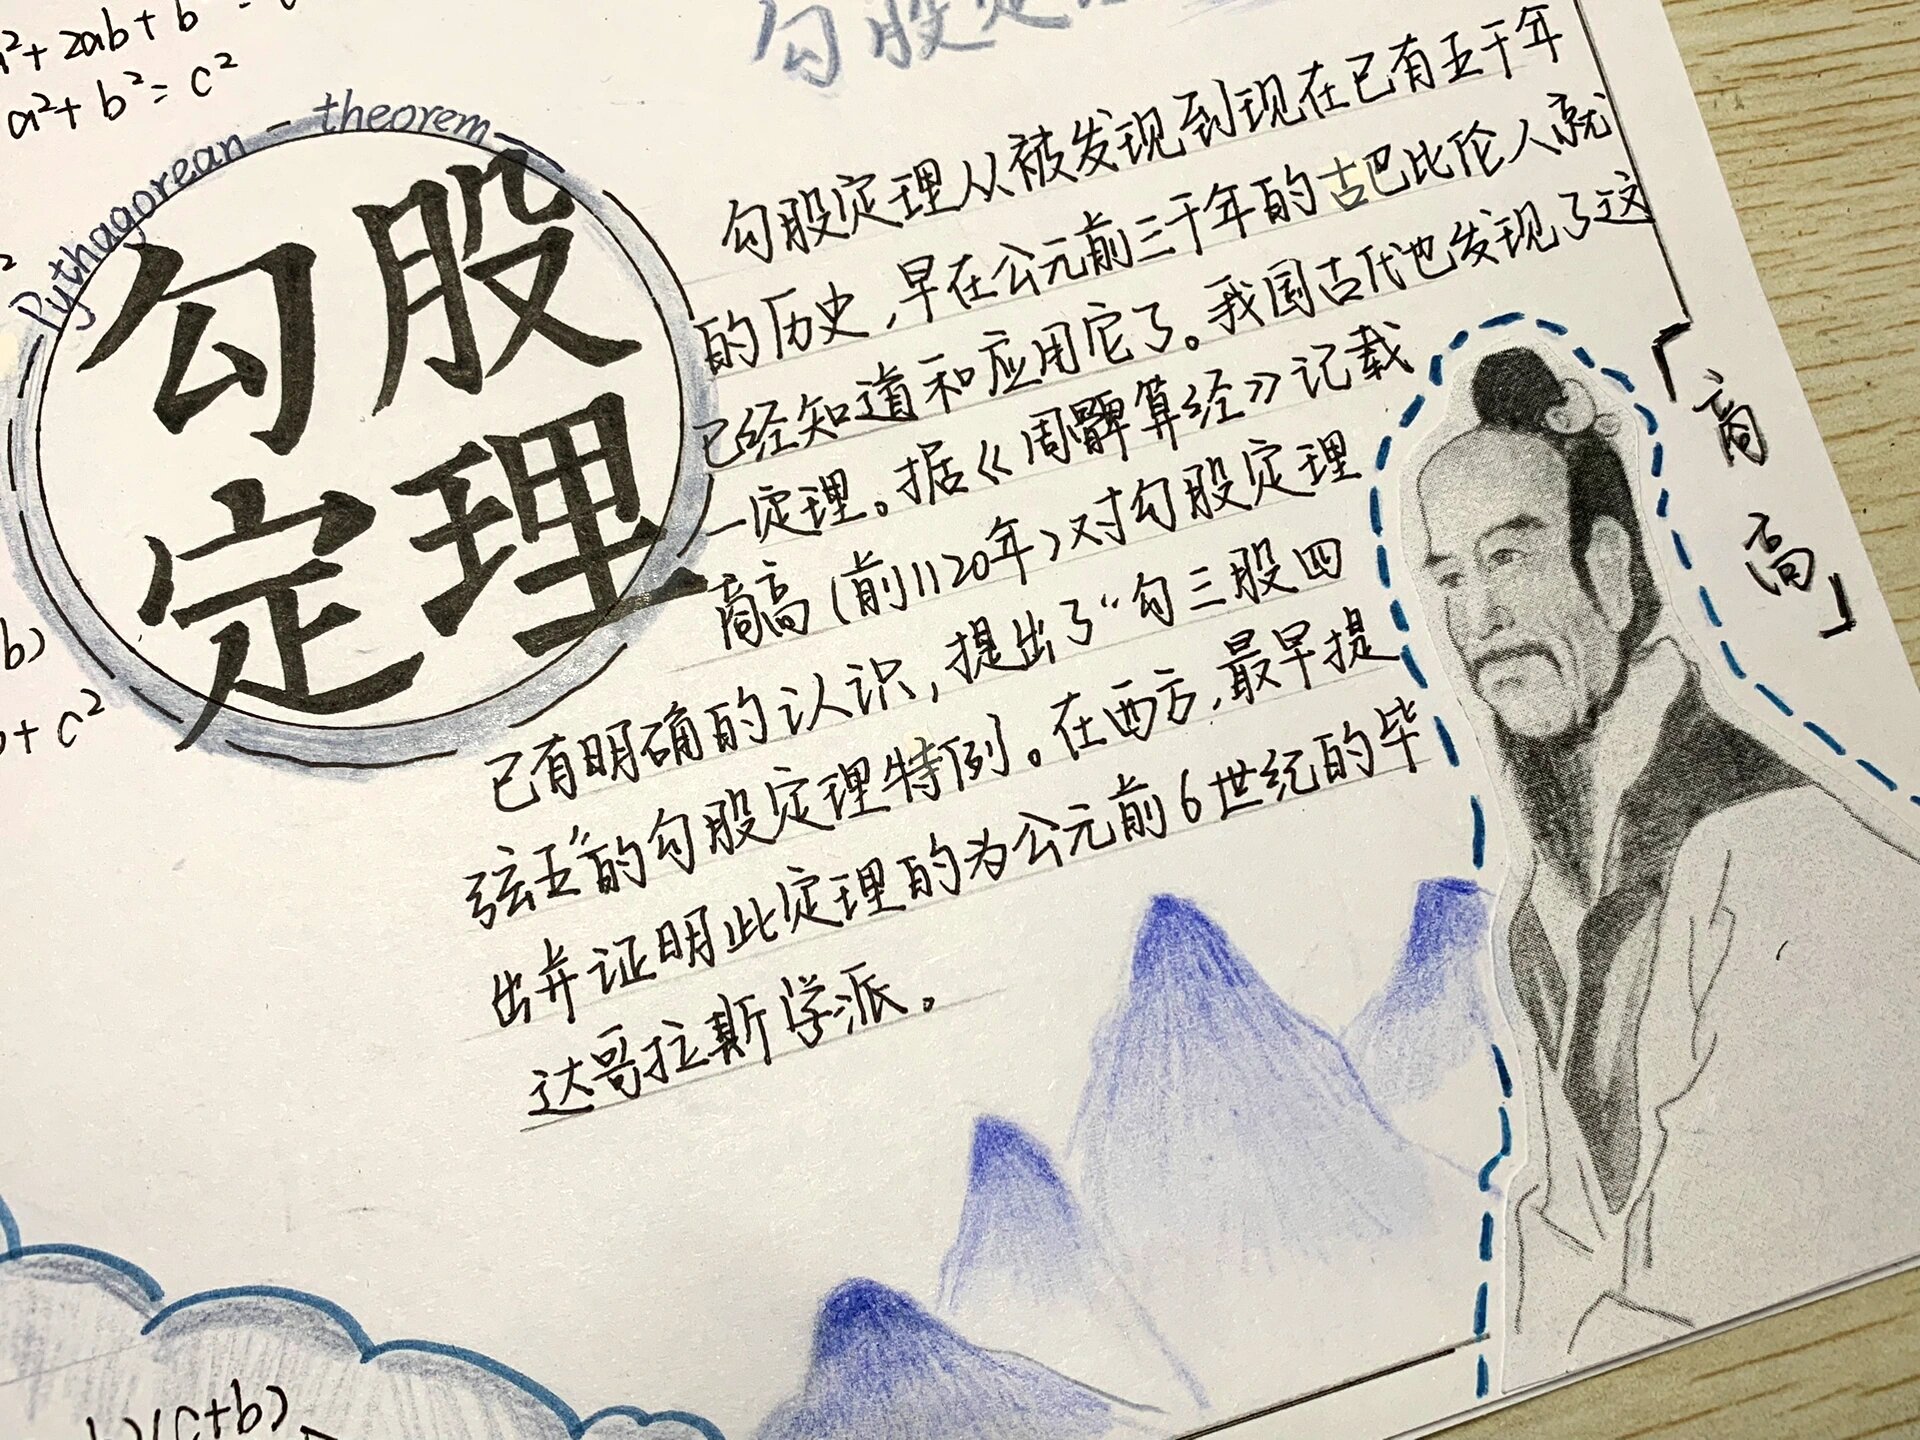 a²+2ab+b
a²+b²=c²
Pythagorean theorem
勾股
定理
b)
+c²
勾股定
勾股定理从被发现到现在已有五千年
的历史,早在公元前三千年的古巴比伦人就
已经知道和应用它了。我国古代也发现了这
一定理。据《周髀算经》记载
商高(前1120年)对勾股定理
已有明确的认识,提出了“勾三股四
弦五”的勾股定理特例。在西方,最早提
出并证明此定理的为公元前6世纪的毕
达哥拉斯学派。
「商高」
)(c+b)